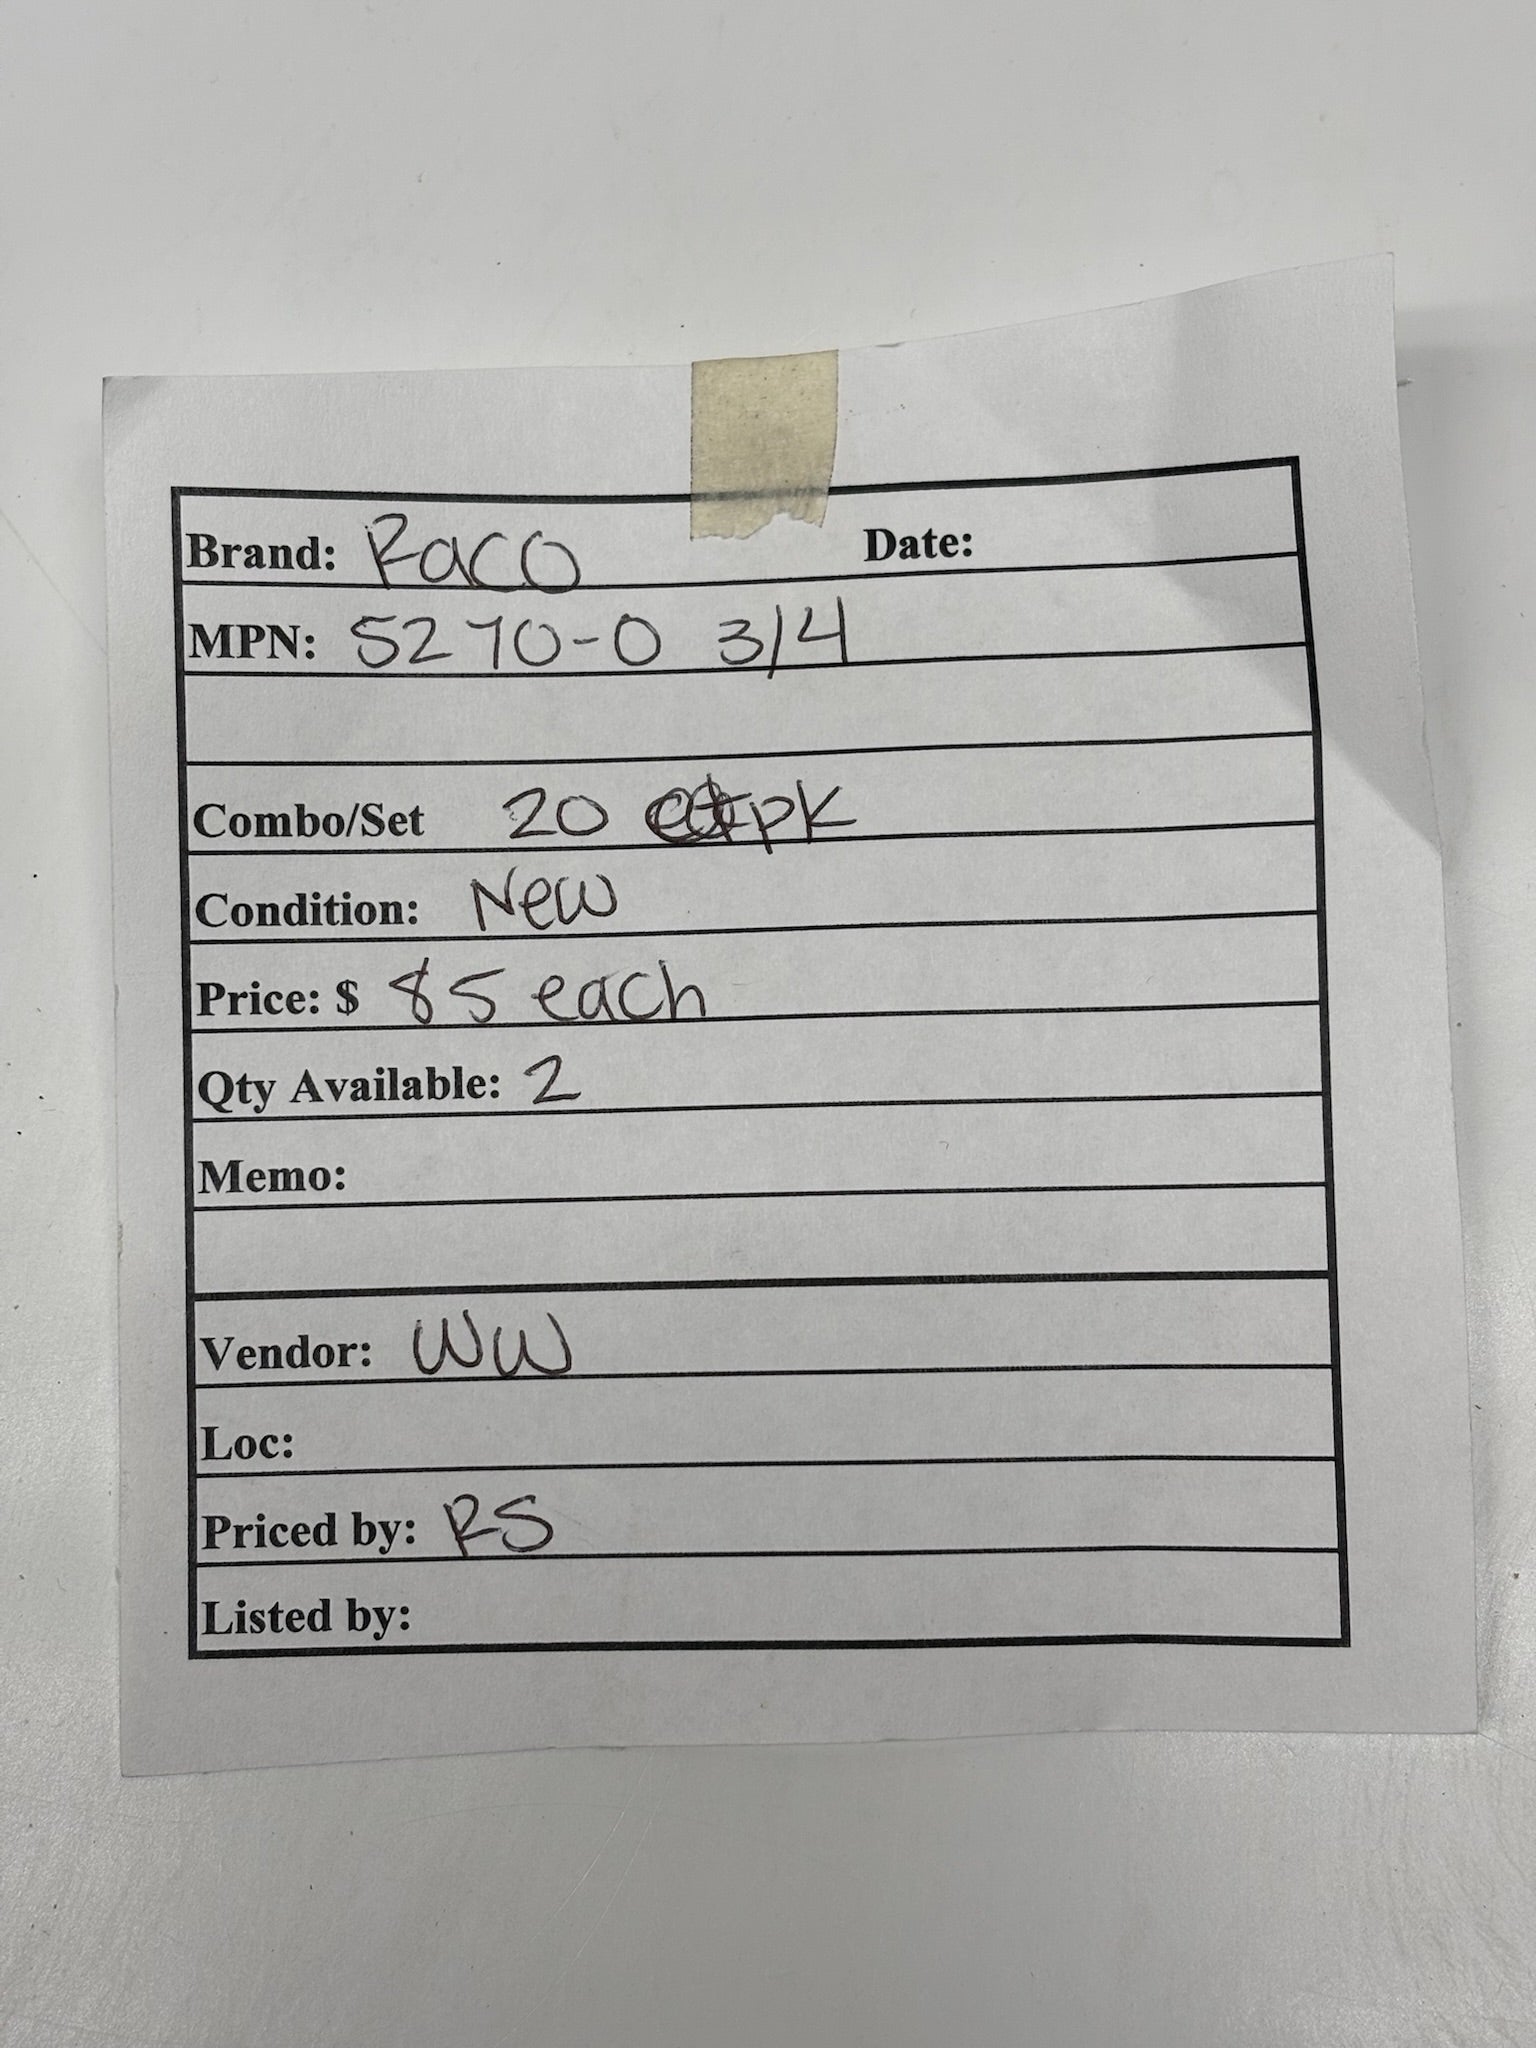 Brand: Raco Date:
MPN: 5270-0 3/4
Combo/Set 20 pk
Condition: New
Price: $ 85 each
Qty Available: 2
Memo:
Vendor: WW
Loc:
Priced by: RS
Listed by: